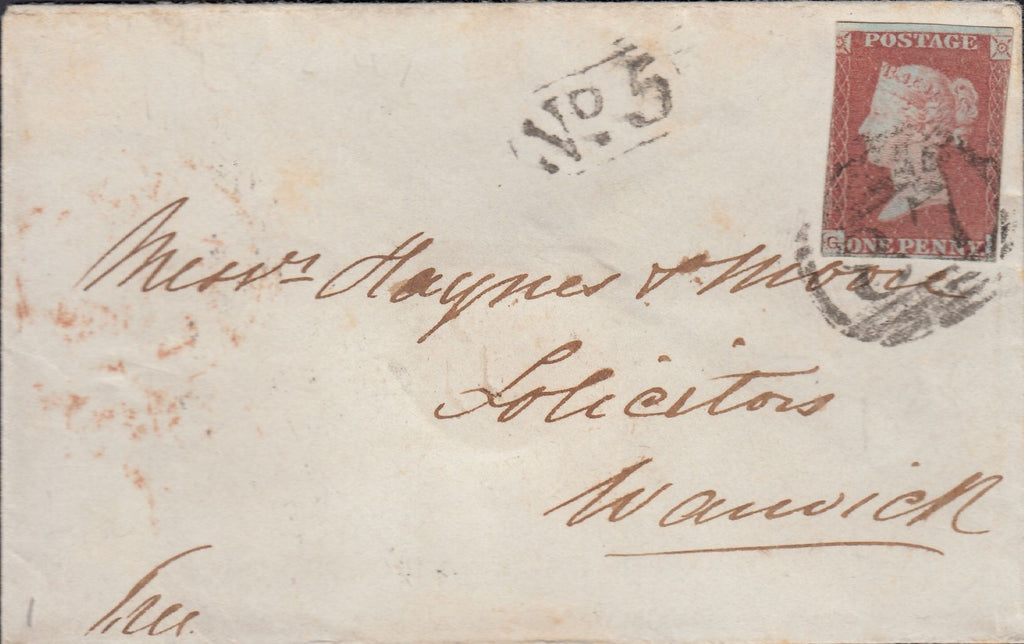 POSTAGE
No. 5
G
ONE PENNY
Messrs Haynes & Moore
Solicitors
Warwick